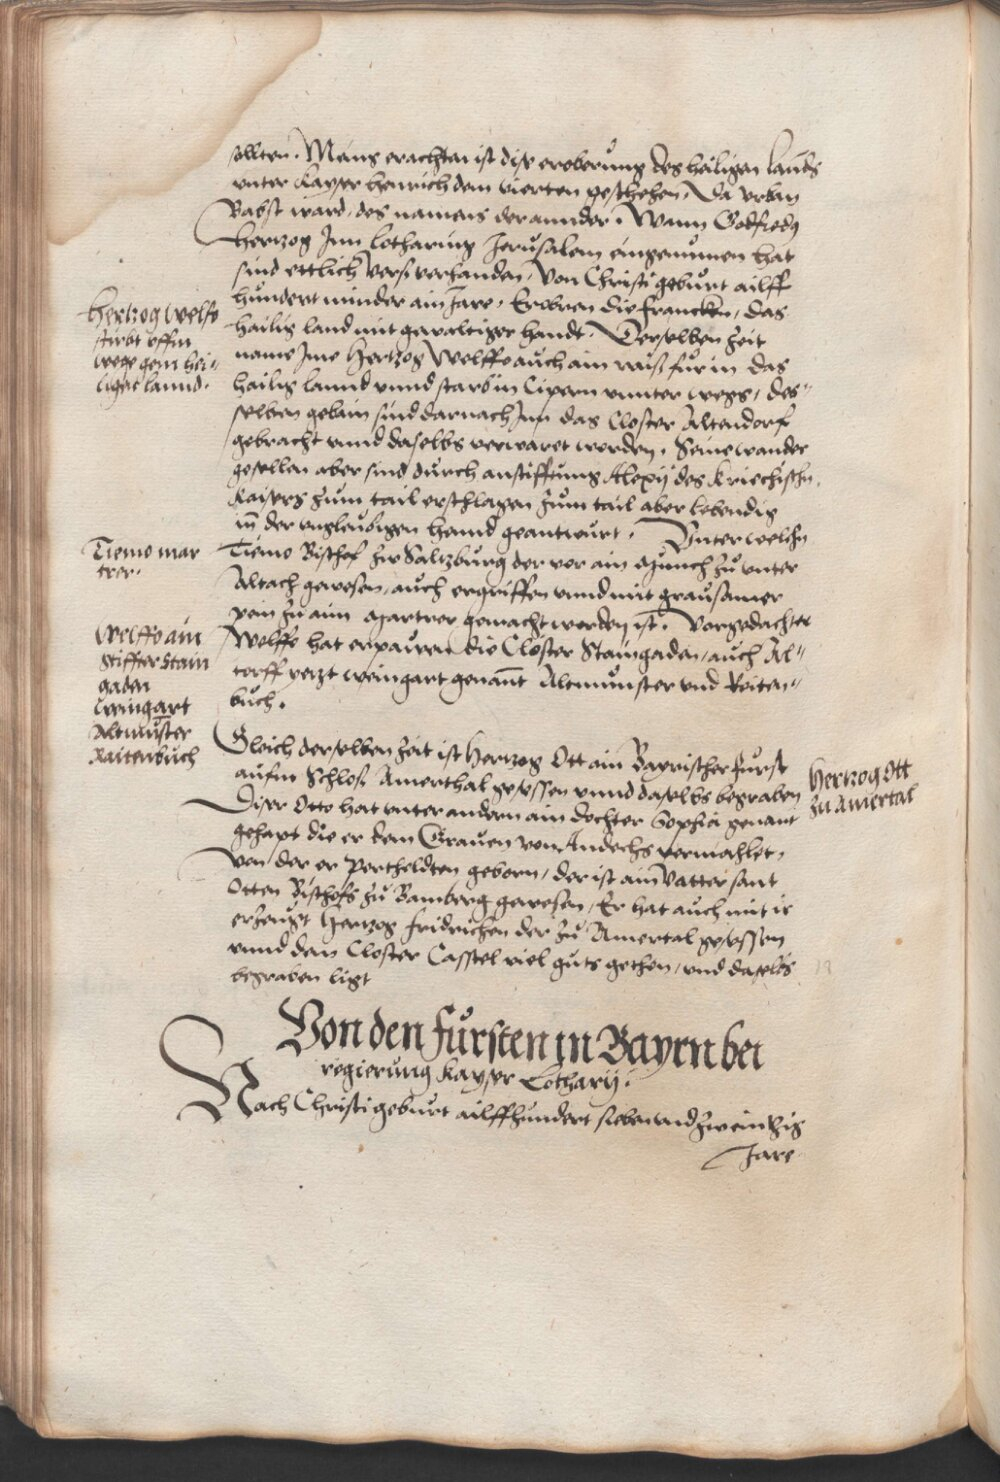 sollten. Meins erachten ist dise eroberung des heiligen lands
unter Kayser Henrich dem vierten geschehen, Da Urban
Babst ward, des namens der annder. Wann Godfredus
Hertzog Inn Lotharing Jerusalem eingenumen hat
sind ettlich vers verhanden, Von Christi geburt ailff
hundert minder ain Jare, Erobren die Francken, das
hailig land mit gewaltiger handt. Derselben Zeit
name Ime Hertzog Welffo auch ain raiß für in das
hailig lannd unnd starb in Cipern unnter wegs, des-
selben gebain sind darnach Inn das Closter Altendorf
gebracht unnd daselbs verwaret worden. Seine wander
gesellen aber sind durch anstifftung Alexij des Kriechischn
Kaisers zum tail erschlagen zum tail aber lebendig
in der unglaubigen hannd geantwurt. Unter welchn
Tiemo Bischof zu Saltzburg der vor ain Munch zu unter
Altach gewesen, auch ergriffen unnd mit grausamer
pein zu aim Martrer gemacht worden ist. Vorgedachter
Welffo hat erpauwen die Closter Staingaden, auch Al-
torff yetzt Weingart genannt Altmunster und Reiten-
buch.
Hertzog Welfo
stirbt uffm
wege gem hei-
ligen lannd.
Tiemo mar
trer.
Welffo ain
Stiffter Stain
gaden
Weingart
Altmunster
Raitenbuch
Gleich derselben Zeit ist Hertzog Ott ain Bayrischer furst
aufm Schloß Amerthal gesessen unnd daselbs begraben
Diser Otto hat unter andern ain dochter Sophia genant
gehapt die er dem Graven von Andechs vermahlet,
Von der er Pertholdten geborn, der ist ain Vatter sant
Otten Bischofs zu Bamberg gewesen, Er hat auch mit ir
erzeugt Hertzog Fridrichen der zu Amertal gesessen
unnd dem Closter Casstel viel guts gethon, und daselbs
begraben ligt
Hertzog Ott
zu Amertal
Von den Fürsten in Bayrn bei
regierung Kayser Lotharij.
Nach Christi geburt ailffhundert siben und zweintzig
Jare